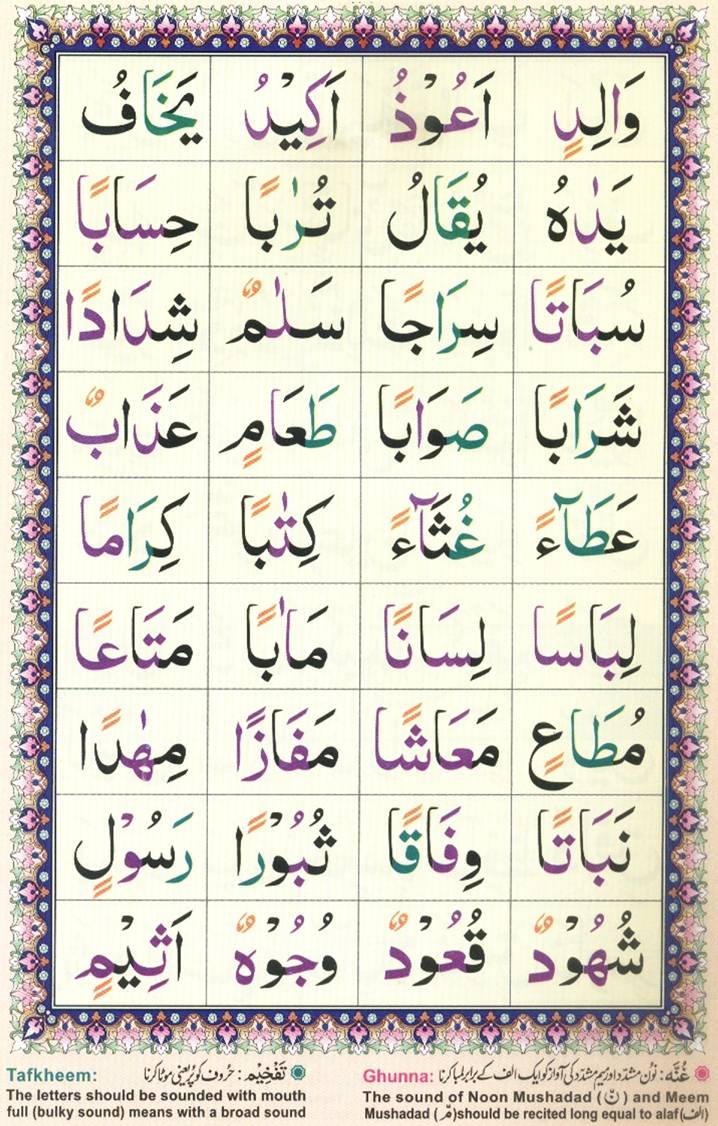 وَالِدٍ اَعُوْذُ اَكِيْدُ يَخَافُ
يَدٰهُ يُقَالُ تُرٰبًا حِسَابًا
سُبَاتًا سِرَاجًا سَلٰمٌ شِدَادًا
شَرَابًا صَوَابًا طَعَامٍ عَذَابٌ
عَطَآءً غُثَآءً كِتٰبًا كِرَامًا
لِبَاسًا لِسَانًا مَاٰبًا مَتَاعًا
مُطَاعٍ مَعَاشًا مَفَازًا مِهٰدًا
نَبَاتًا وِفَاقًا ثُبُوْرًا رَسُوْلٍ
شُهُوْدٌ قُعُوْدٌ وُجُوْهٌ اَثِيْمٍ
Ghunna: غُنَّه: نون مشدّد اور میم مشدّد کی آواز کو ایک الف کے برابر لمبا کرنا
The sound of Noon Mushadad (نّ) and Meem
Mushadad (مّ) should be recited long equal to alaf (الف)
Tafkheem: تَفْخِيْم: حروف کو پُر یعنی موٹا کرنا
The letters should be sounded with mouth
full (bulky sound) means with a broad sound